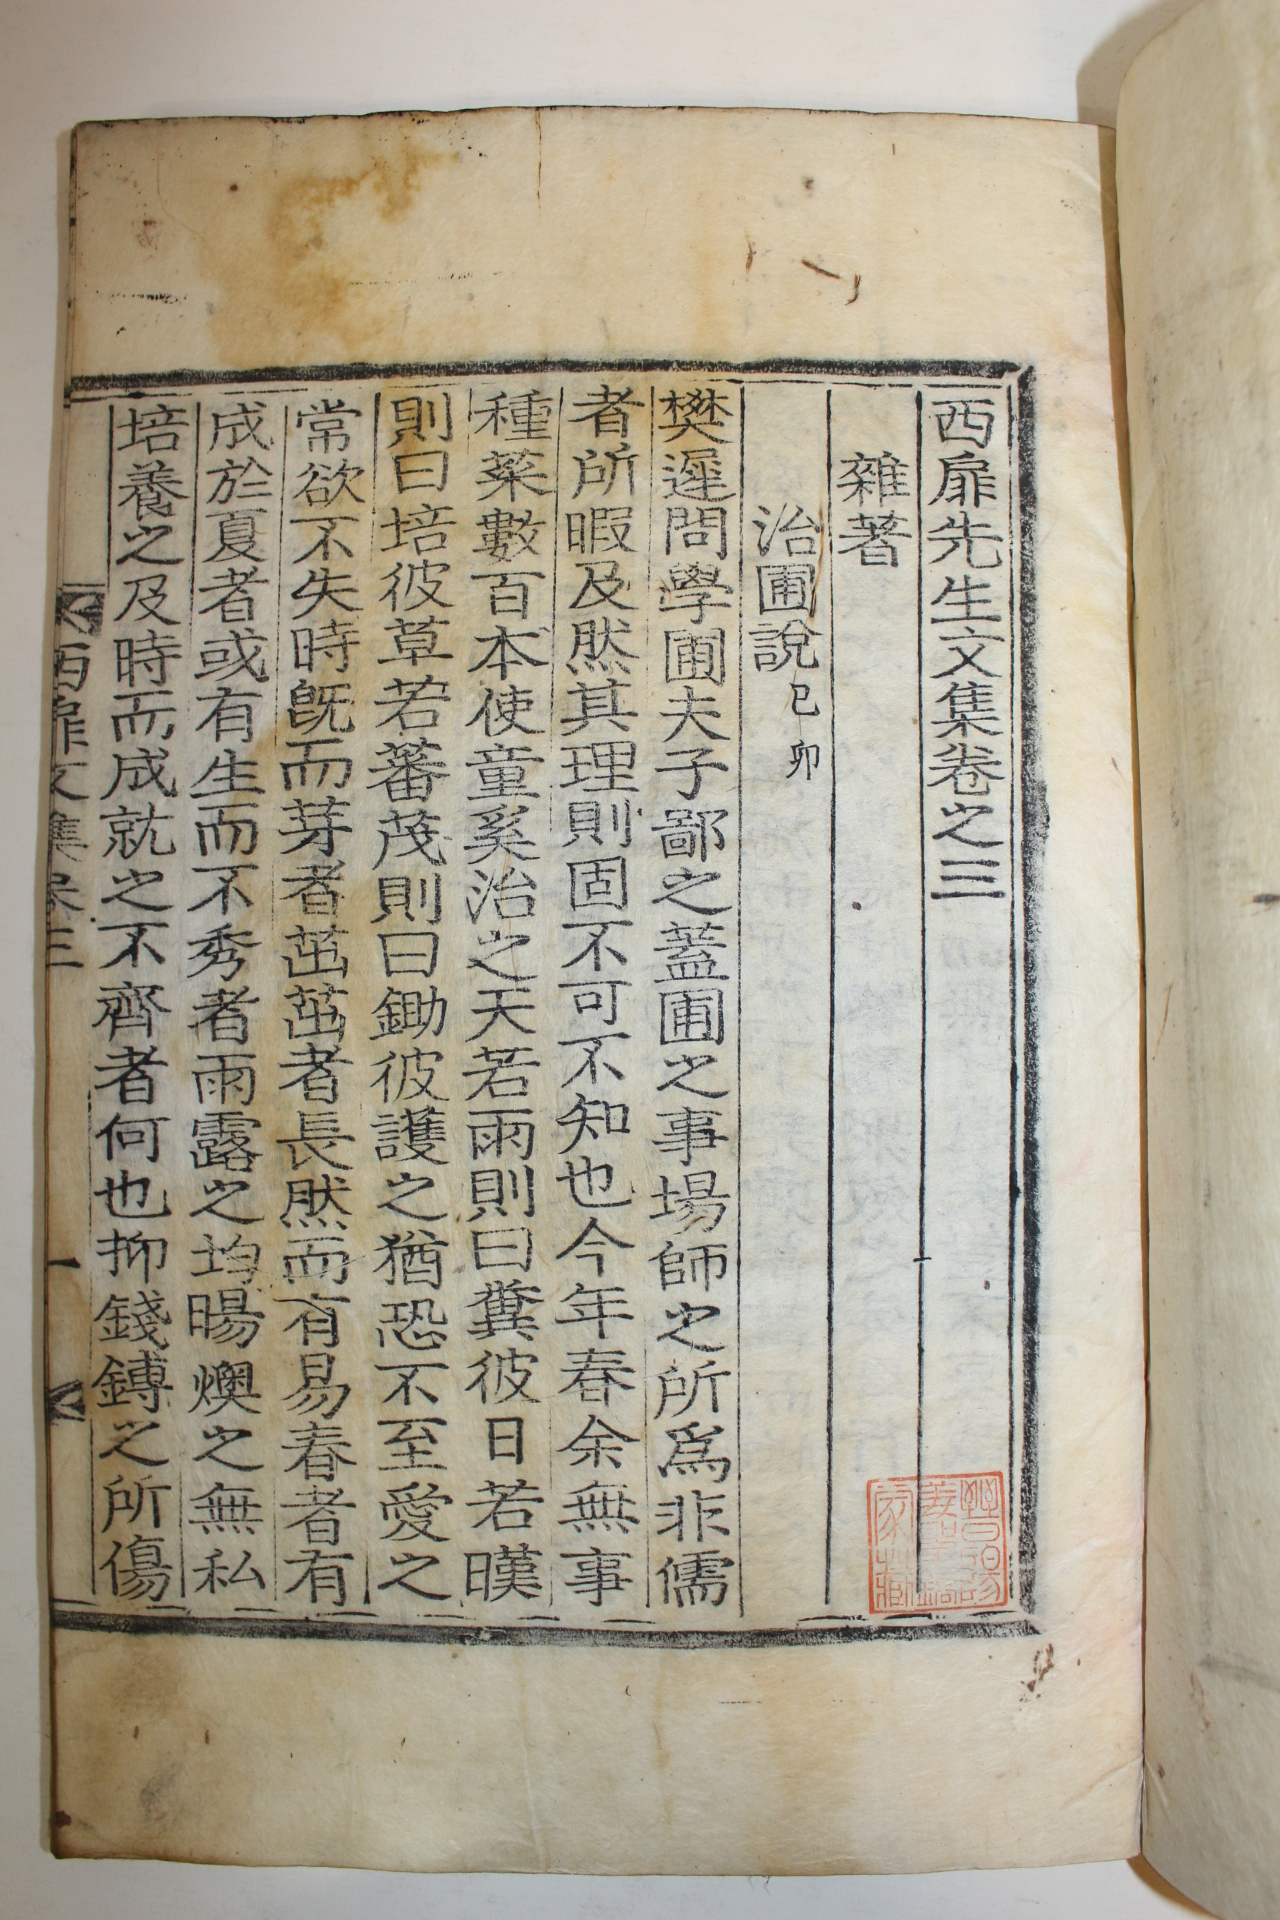 西扉先生文集卷之三
雜著
治圃說己卯
樊遲問學圃夫子鄙之蓋圃之事場師之所爲非儒
者所暇及然其理則固不可不知也今年春余無事
種菜數百本使童奚治之天若雨則曰糞彼日若暵
則曰培彼草若蕃茂則曰鋤彼護之猶恐不至愛之
常欲不失時旣而芽者茁茁者長然而有易春者有
成於夏者或有生而不秀者雨露之均暘燠之無私
培養之及時而成就之不齊者何也抑錢鎛之所傷
西扉文集卷三
一